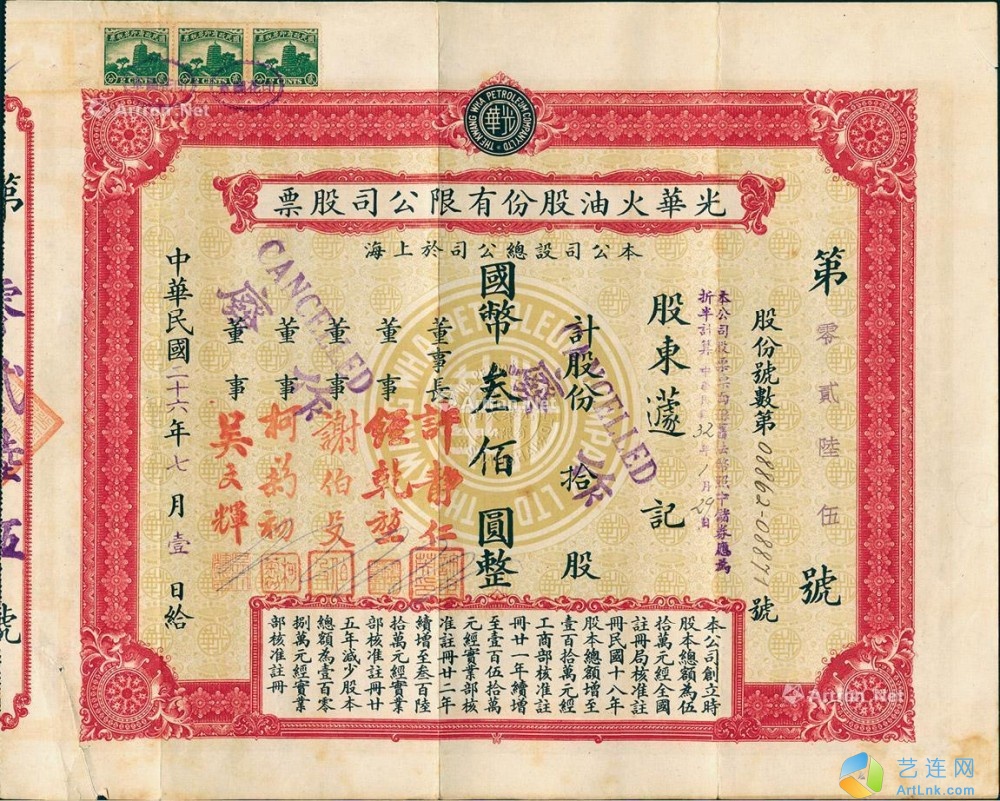 國民政府印花稅票 國民政府印花稅票 國民政府印花稅票
2 CENTS 2 CENTS 2 CENTS
THE KWANG WHA PETROLEUM COMPANY LTD
光華
光華火油股份有限公司股票
本公司設總公司於上海
第零貳陸伍號
股份號數第08862-08871號
本公司股票票面
折半計算
32年1月29日
股東蘧記
計股份拾股
國幣叁佰圓整
董事長 許靜仁
董事
董事 謝伯殳
董事 柯菊初
董事 吳文輝
中華民國二十六年七月壹日給
CANCELLED
CANCELLED
廢作
廢作
本公司創立時
股本總額為伍
拾萬元經全國
註冊局核准註
冊民國十八年
股本總額增至
壹百拾萬元經
工商部核准註
冊廿一年續增
至壹百伍拾萬
元經實業部核
准註冊廿二年
續增至叁百陸
拾萬元經實業
部核准註冊廿
五年減少股本
總額為壹百零
捌萬元經實業
部核准註冊
第零貳陸伍號
Artron.Net
Artron.Net
Artron.Net
Artron.Net
艺连网
ArtLnk.com